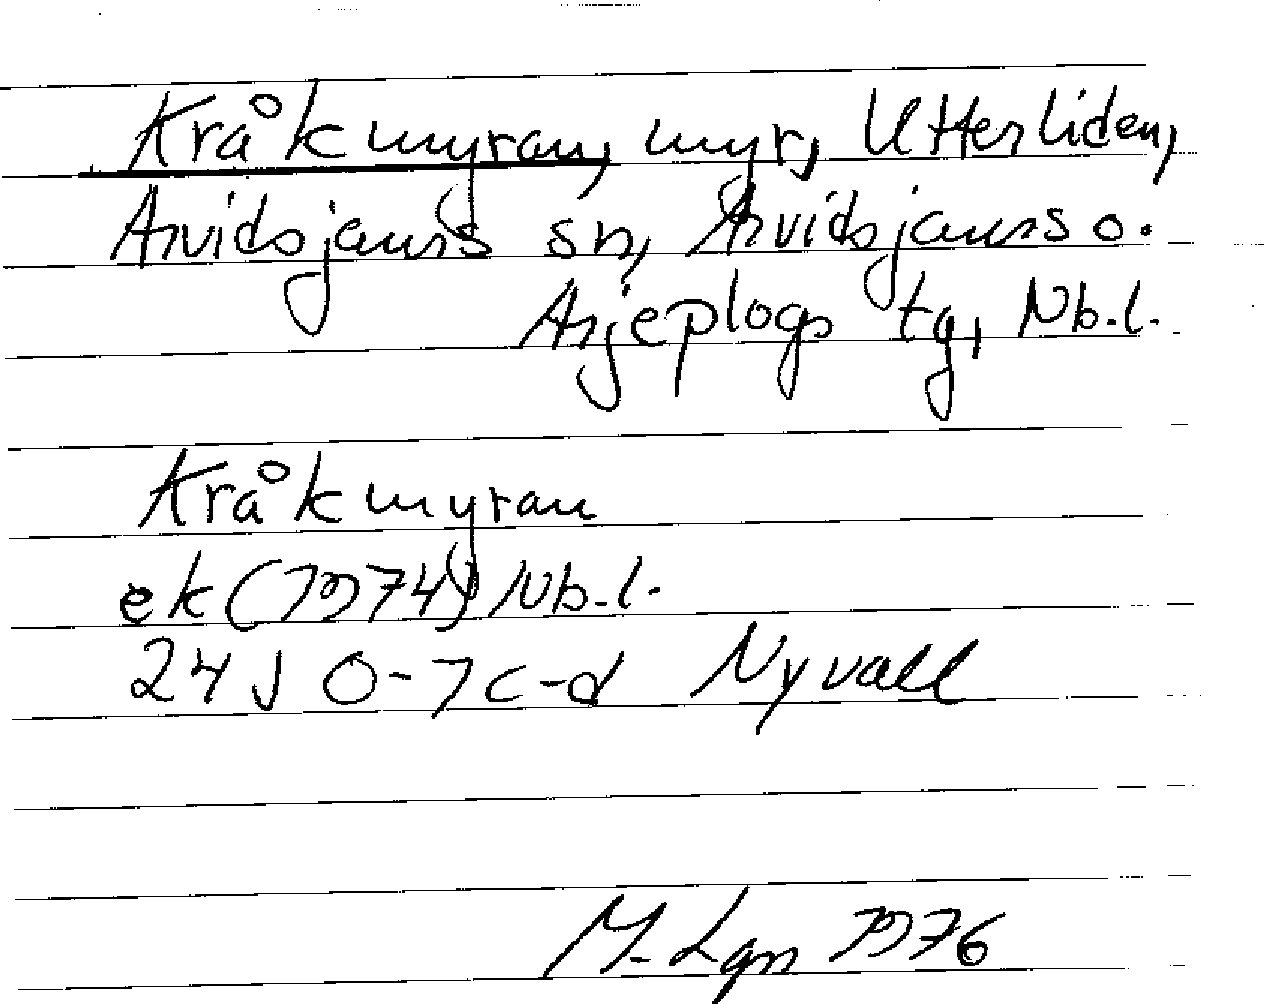 Kråkmyran, myr, Utterliden,
Arvidsjaurs sn, Arvidsjaurs o.
Arjeplogs tg, Nb.l.
Kråkmyran
ek (1974) Nb.l.
24J 0-1c-d Nyvall
M. Lgn 1976